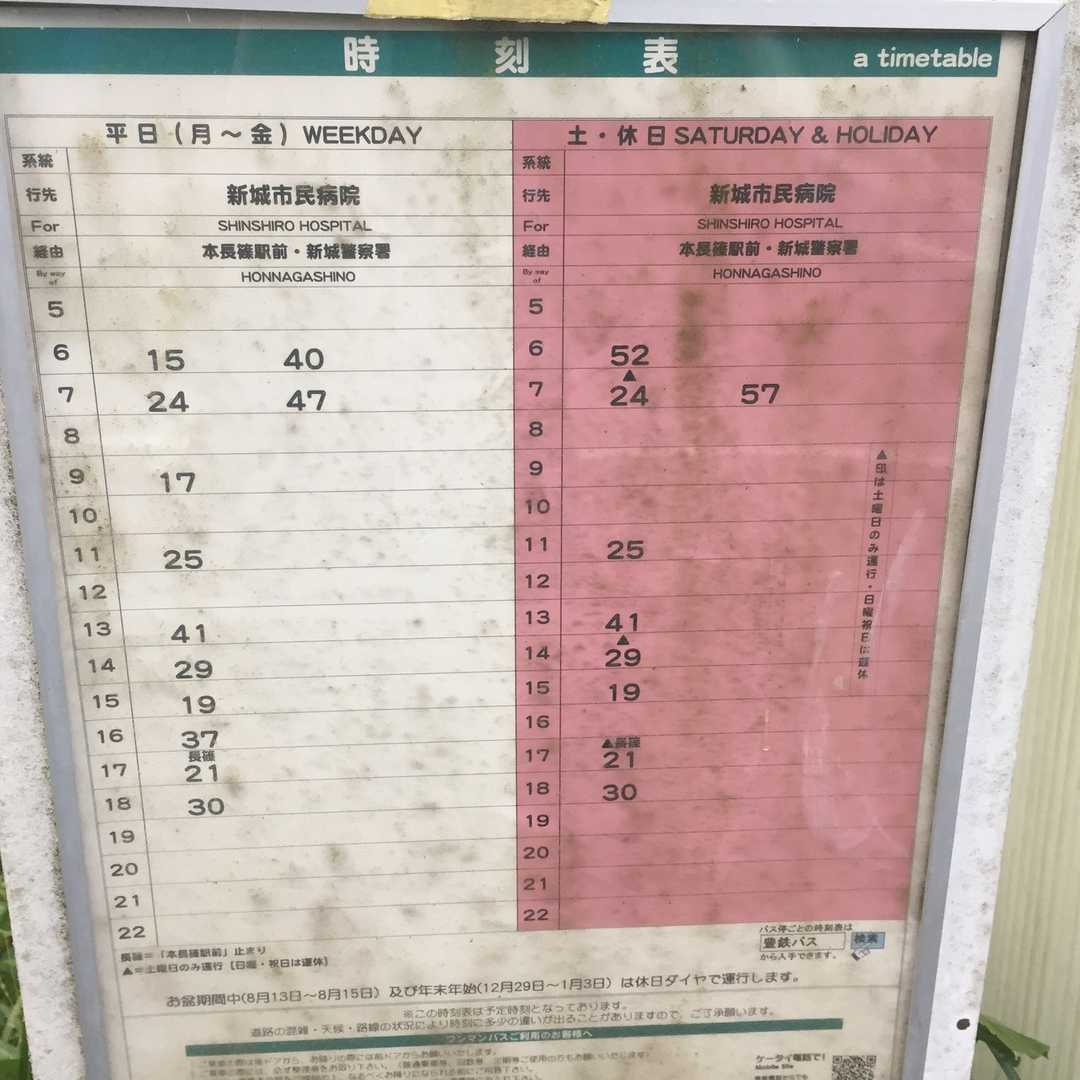 時刻表 a timetable
平日(月～金) WEEKDAY 土・休日 SATURDAY & HOLIDAY
系統 系統
行先 新城市民病院 行先 新城市民病院
For SHINSHIRO HOSPITAL For SHINSHIRO HOSPITAL
経由 本長篠駅前・新城警察署 経由 本長篠駅前・新城警察署
By way of HONNAGASHINO By way of HONNAGASHINO
5 5
6 15 40 6 52
7 24 47 7 ▲24 57
8 8
9 17 9
10 10
11 25 11 25
12 12
13 41 13 41
14 29 14 ▲29
15 19 15 19
16 37 16
17 長篠21 17 ▲長篠21
18 30 18 30
19 19
20 20
21 21
22 22
▲印は土曜日のみ運行・日曜祝日は運休
長篠=「本長篠駅前」止まり
▲=土曜日のみ運行【日曜・祝日は運休】
バス停ごとの時刻表は
豊鉄バス 検索
から入手できます。
お盆期間中(8月13日～8月15日)及び年末年始(12月29日～1月3日)は休日ダイヤで運行します。
※この時刻表は予定時刻となっております。
道路の混雑・天候・路線の状況により時刻に多少の違いが出ることがありますので、ご了承願います。
ワンマンバスご利用のお客様へ
ケータイ電話で!
Mobile Site